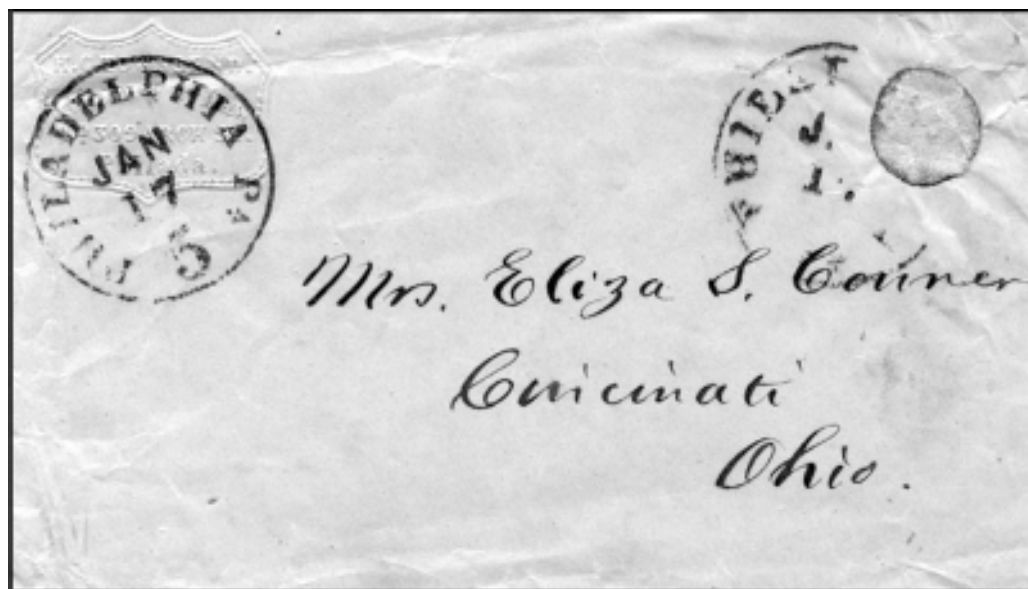 PHILADELPHIA Pa
JAN
17
5
Mrs. Eliza S. Conner
Cincinati
Ohio.